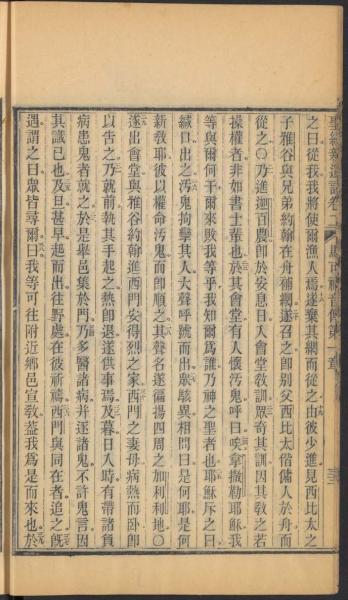 聖經新遺詔卷二 馬可福音傳第一章
之曰從我我將使爾漁人焉遂棄其網而從之由彼少進見西比太之
子雅谷與兄弟約翰在舟補網遂召之卽別父西比太偕傭人於舟而
從之〇乃進迦百農卽於安息日入會堂敎訓眾奇其訓因其敎之若
操權者非如書士輩也於其會堂有人懷汚鬼呼曰唉拿撒勒耶穌我
等與爾何干爾來敗我等乎我知爾爲誰乃神之聖者也耶穌斥之曰
緘口出之汚鬼拘攣其人大聲呼號而出眾駭異相問曰是何耶是何
新敎耶彼以權命汚鬼而卽順之其聲名遂徧揚四周之加利利地〇
遂出會堂與雅谷約翰進西門安得烈之家西門之妻母病熱而臥卽
以告之乃就前執其手起之熱卽退遂供事焉及暮日入時有帶諸負
病患鬼者就之於是舉邑集於門乃多醫諸病并逐諸鬼不許鬼言因
其識己也及旦甚早起而出往野處在彼祈禱西門與同在者追之旣
遇謂之曰眾皆尋爾曰我等可往附近鄉邑宣敎葢我爲是而來也於